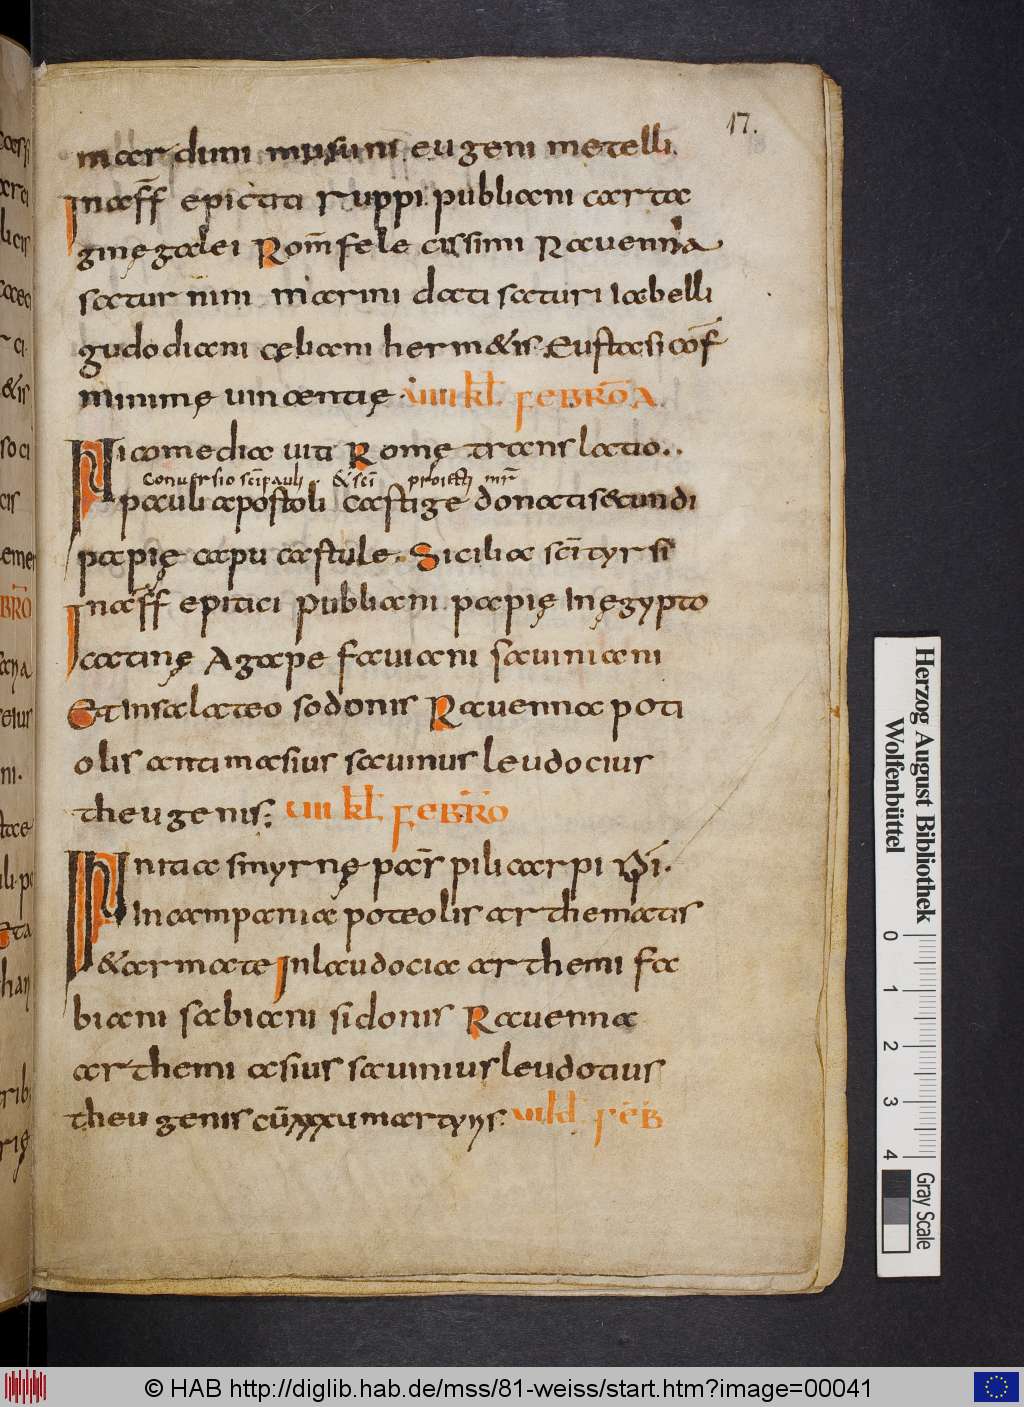 17.
marduni musuni eugeni metelli.
Inaff̄ epictiti ruppi. publiani carta
ginę galei Rom̄ felecissimi Rauenna
saturnini marini dati saturi Iabelli
gudodiani cęliani herm&is. Eustasi cōf
minimę uincentię. uiiii kl̄ FEBRŌA
Nicomedia uiti Romę translatio..
Conuersio scīpauli. &scī proiecti mr̄
pauli apostoli castige donati secundi
papię capu castule. Sicilia scī tyrsi
Inaff̄ epitici publiani papię In ęgypto
catinę Agape fauiani sauiniani
Et In salateo sodonis Rauenna poti
olis antimasius sauinus leudocius
theugenis; uiii kl̄ FEBRO
In ti a smyrnę parr̄ pilicarpi ep̄i.
In campania poteolis arthematis
&armate In laudocia arthemi fa
biani sabiani sidonis Rauenna
arthemi asius sauinius leudotius
theugenis cū xxxcu martyris. uii kl̄ FEB
Herzog August Bibliothek
Wolfenbüttel
0 1 2 3 4
Gray Scale
© HAB http://diglib.hab.de/mss/81-weiss/start.htm?image=00041